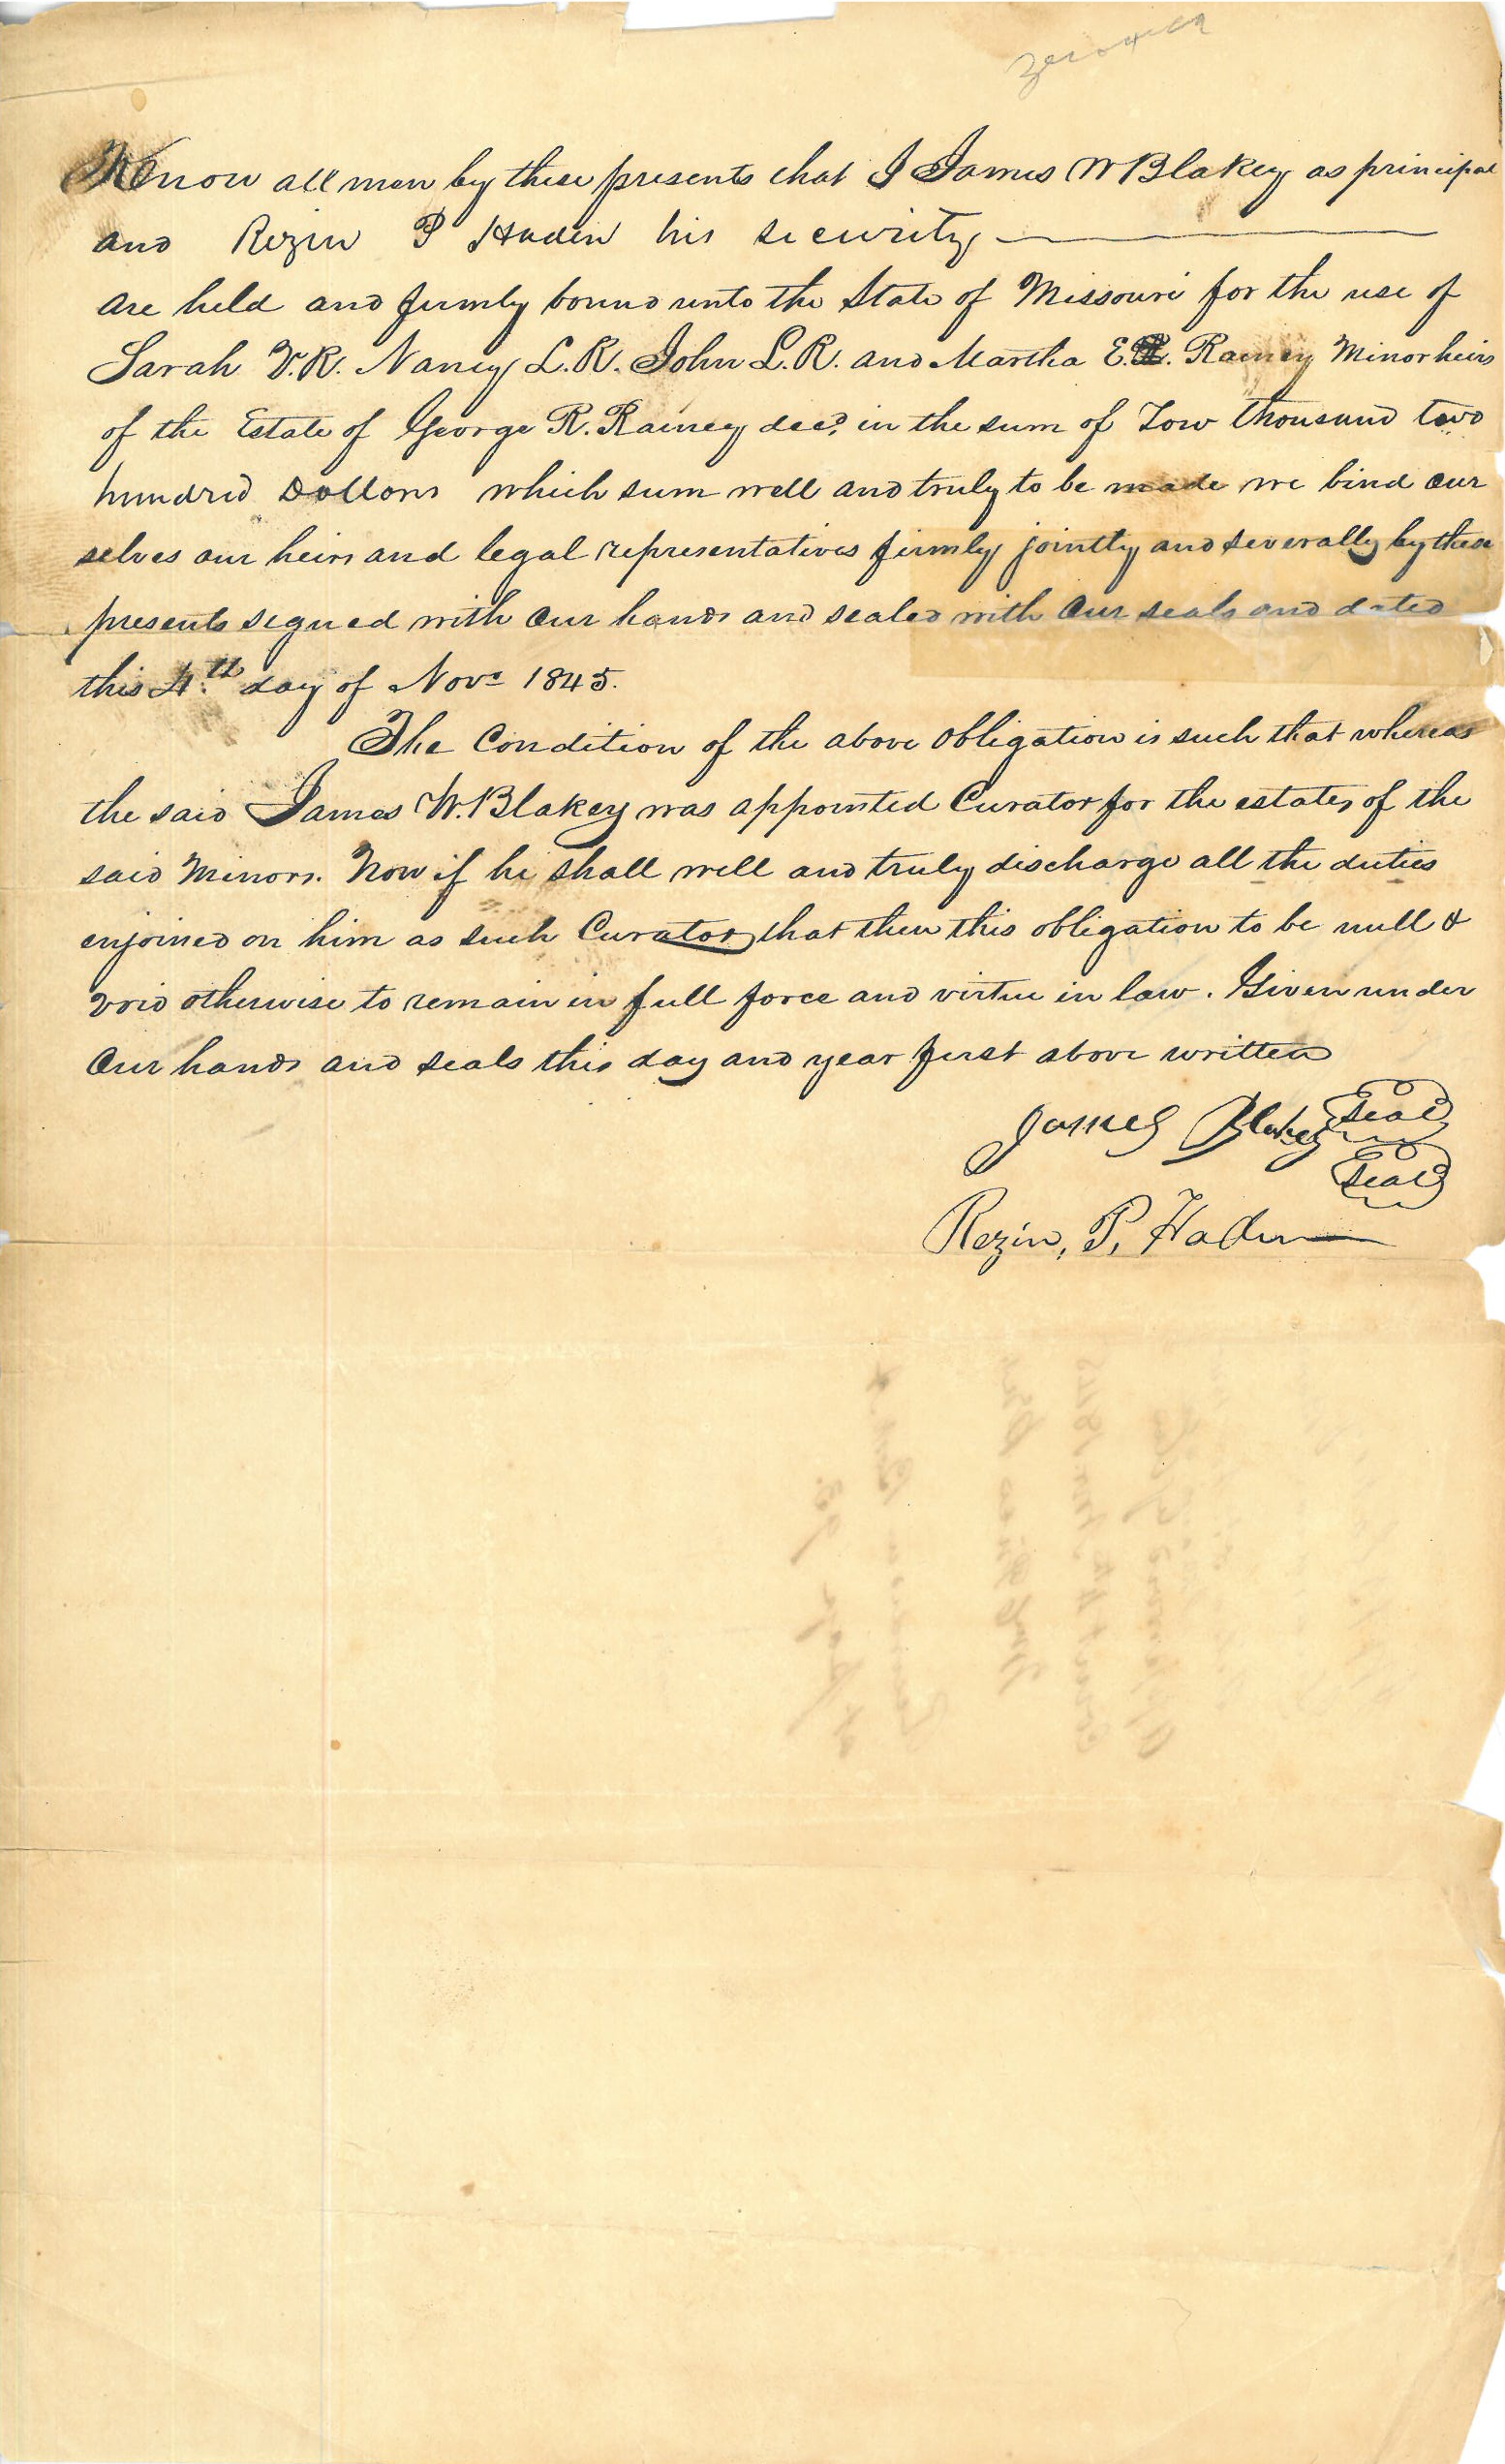 Xerox
Know all men by these presents that I James W Blakey as principal
and Rezin P Haden his security
are held and firmly bound unto the State of Missouri for the use of
Sarah V.R. Nancy L.R. John L.R. and Martha E. R. Rainey Minor heirs
of the Estate of George R. Rainey decd. in the sum of Tow thousand two
hundred Dollars which sum well and truly to be made we bind our
selves our heirs and legal representatives firmly jointly and severally by these
presents signed with our hands and sealed with our seals and dated
this 4th. day of Novr 1845.
The Condition of the above obligation is such that whereas
the said James W. Blakey was appointed Curator for the estates of the
said Minors. Now if he shall well and truly discharge all the duties
enjoined on him as such Curator that then this obligation to be null &
void otherwise to remain in full force and virtue in law. Given under
our hands and seals this day and year first above written
James Blakey Seal
Seal
Rezin, P, Haden